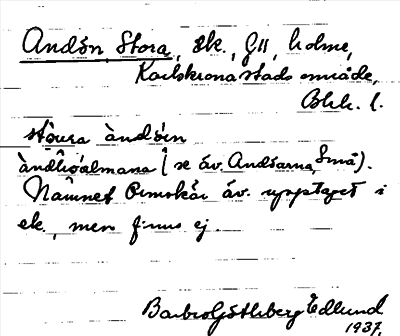 Andön, Stora, Ek., G11, holme,
Karlskrona stads område,
Blek. l.
ståura àndöin
(se äv. Andöarna, Små).
Namnet Ormskär äv. upptaget i
ek., men finns ej.
Barbro Götherberg Edlund
1937.